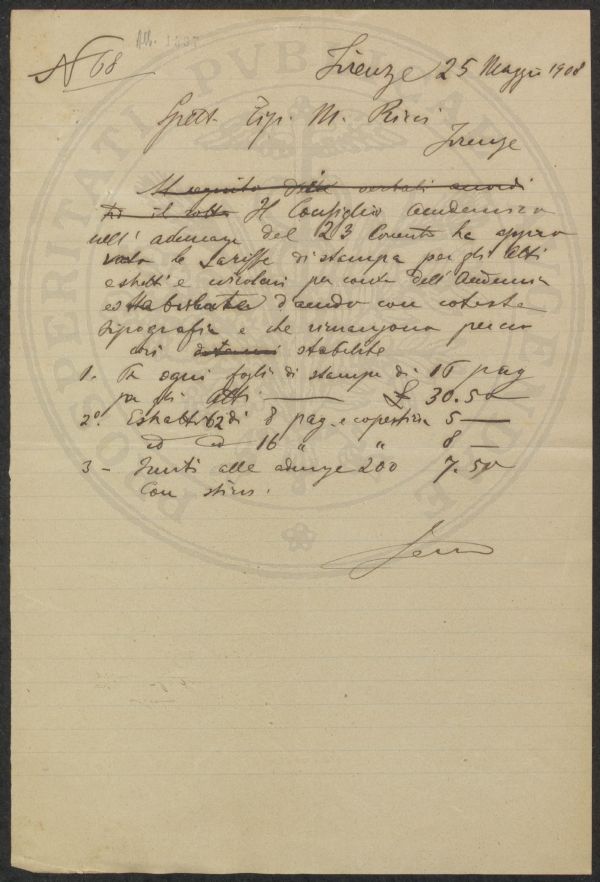 Alb. 1437
N 68
Firenze 25 Maggio 1908
Spett. Tip. M. Ricci
Firenze
A seguito delle verbali accordi
il sotto Il Consiglio accademico
nell' adunanza del 23 Corrente ha appro
vato le tariffe di stampa per gli Atti
estratti e circolari per conto dell' Accademia
e stabilate d'accordo con cotesta
tipografia e che rimangono percio
così stabilite
1. Per ogni foglio di stampa di 16 pag
per gli Atti — £ 30.50
2º. Estratti di 8 pag. e copertina 5 —
id id 16 " " 8 —
3 - Inviti alle adunze 200 7.50
Con stima.
PROSPERITATI PVBLICAE